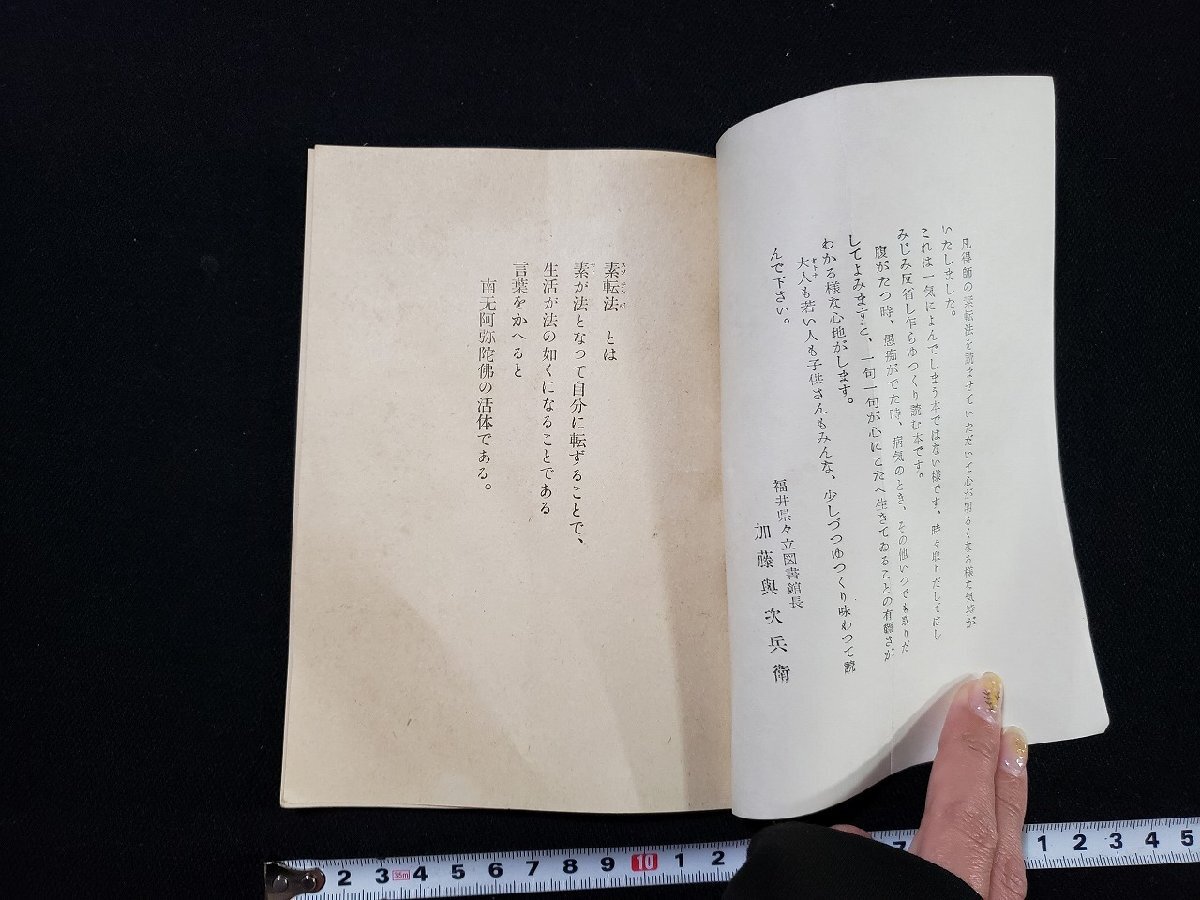 凡得師の素転法を読ませていただいて心が明るくなる様な気持が
いたしました。
これは一気によんでしまう本ではない様です、時々取りだしてしみ
みじみ反省し乍らゆつくり読む本です。
腹がたつ時、愚痴がでた時、病気のとき、その他いつでも
してよみますと、一句一句が心にこたへ生きてゐることの有難さが
わかる様な心地がします。
大人も若い人も子供さんもみんな、少しづつゆつくり味わつて読
んで下さい。
福井県々立図書館長
加藤與次兵衛
素転法とは
素が法となって自分に転ずることで、
生活が法の如くになることである
言葉をかへると
南无阿弥陀佛の活体である。
2 3 35m 4 5 6 7 8 9 10 1 2 7 1 2 3 4 5